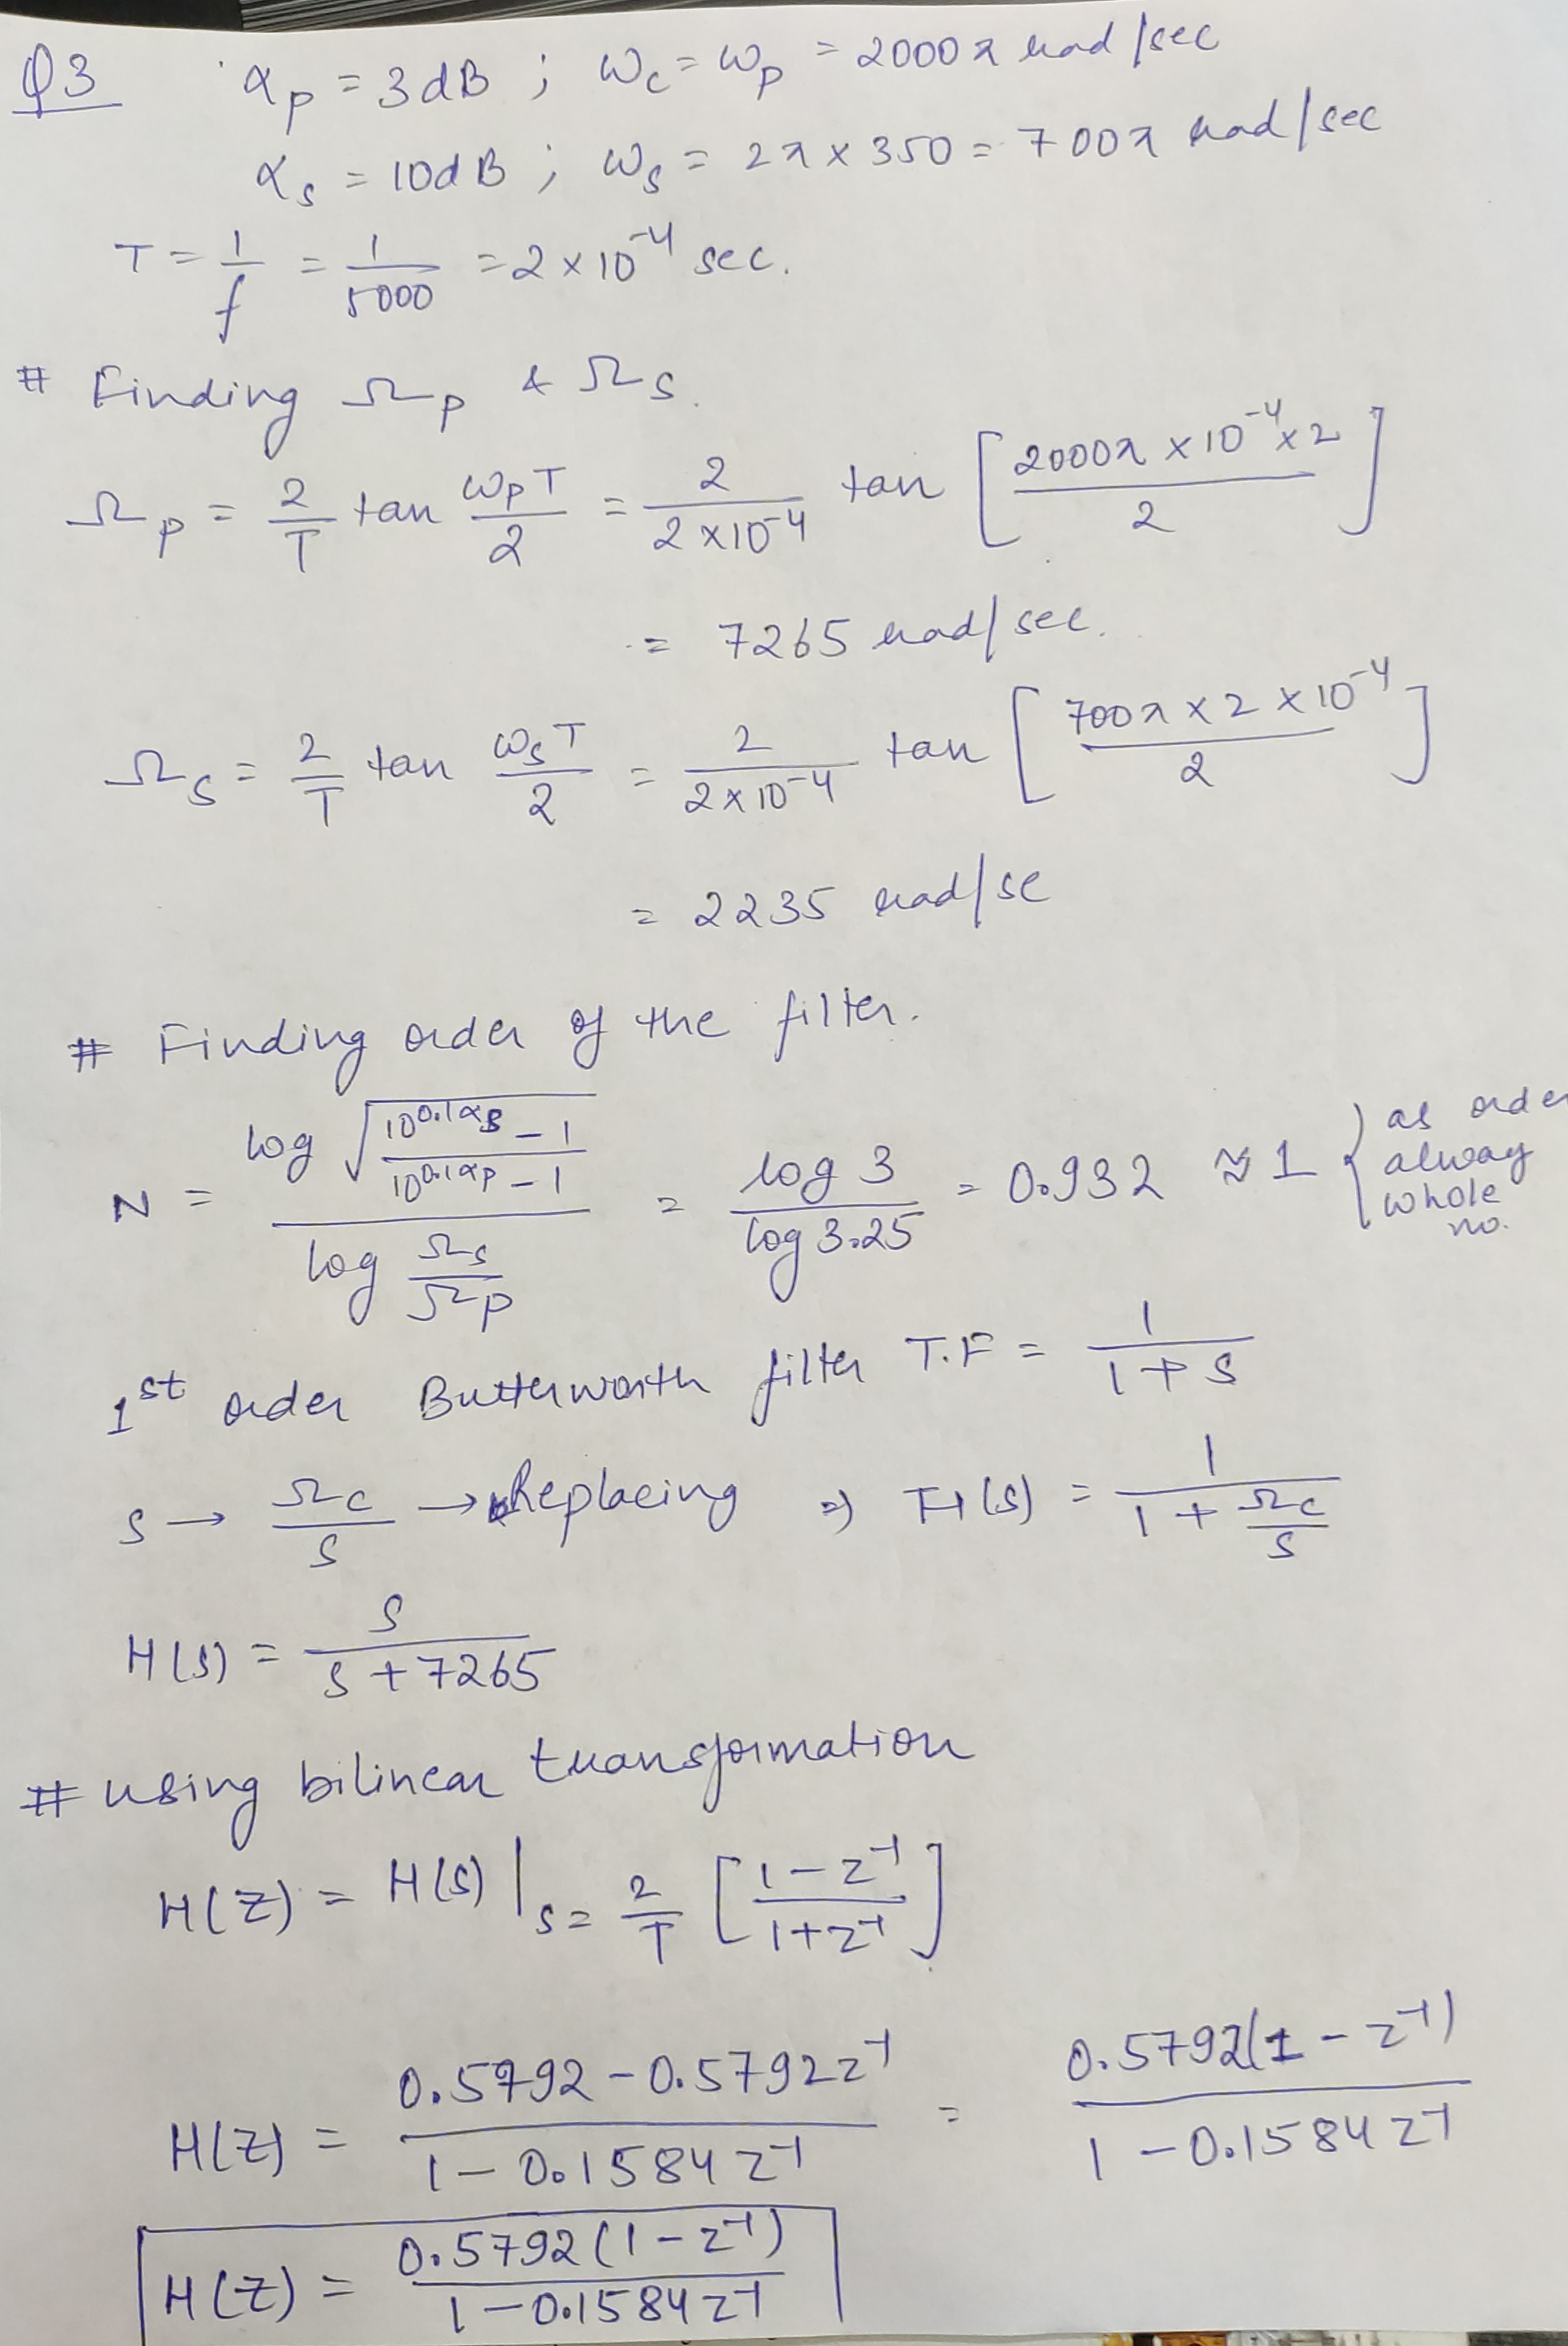 Q3 αp = 3dB ; ωc = ωp = 2000π rad/sec
αs = 10dB ; ωs = 2π × 350 = 700π rad/sec
T = 1/f = 1/5000 = 2 × 10^-4 sec.
# Finding Ωp & Ωs.
Ωp = 2/T tan ωpT/2 = 2/(2×10^-4) tan [(2000π × 10^-4 × 2)/2]
= 7265 rad/sec.
Ωs = 2/T tan ωsT/2 = 2/(2×10^-4) tan [(700π × 2 × 10^-4)/2]
= 2235 rad/se
# Finding order of the filter.
N = (log √((10^0.1αs - 1)/(10^0.1αp - 1)))/(log Ωs/Ωp) = log 3/log 3.25 = 0.932 ≈ 1 { as order alway whole no.
1st order Butterworth filter T.F = 1/(1+S)
S → Ωc/S → Replacing ⇒ H(S) = 1/(1 + Ωc/S)
H(S) = S/(S + 7265)
# using bilinear transformation
H(Z) = H(S) | S = 2/T [(1 - z^-1)/(1 + z^-1)]
H(Z) = (0.5792 - 0.5792 z^-1)/(1 - 0.1584 z^-1) = 0.5792(1 - z^-1)/(1 - 0.1584 z^-1)
H(Z) = 0.5792(1 - z^-1)/(1 - 0.1584 z^-1)